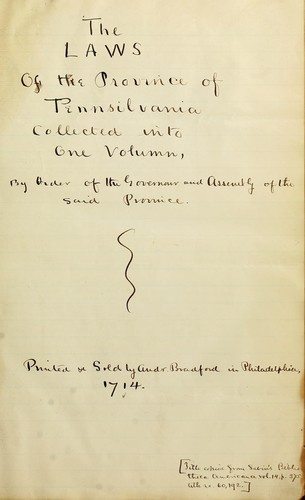 The
LAWS
Of the Province of
Pennsilvania
Collected into
One Volumn,
By Order of the Governour and Assembly of the
said Province.
Printed & Sold by Andr. Bradford in Philadelphia,
1714.
[Title copied from Sabin's Biblio
theca Americana vol. 14, p.
title no. 60,192.]